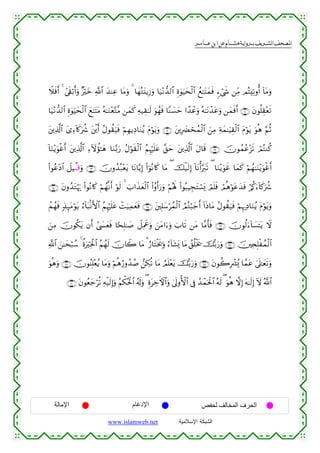 المصحف الشريف برواية هشام عن ابن عامر
وَمَآ أُوتِيتُم مِّن شَىۡءٖ فَمَتَٰعُ ٱلۡحَيَوٰةِ ٱلدُّنۡيَا وَزِينَتُهَاۚ وَمَا عِندَ ٱللَّهِ خَيۡرٞ وَأَبۡقَىٰٓۚ أَفَلَا
تَعۡقِلُونَ ۝ أَفَمَن وَعَدۡنَٰهُ وَعۡدًا حَسَنٗا فَهُوَ لَٰقِيهِ كَمَن مَّتَّعۡنَٰهُ مَتَٰعَ ٱلۡحَيَوٰةِ ٱلدُّنۡيَا
ثُمَّ هُوَ يَوۡمَ ٱلۡقِيَٰمَةِ مِنَ ٱلۡمُحۡضَرِينَ ۝ وَيَوۡمَ يُنَادِيهِمۡ فَيَقُولُ أَيۡنَ شُرَكَآءِىَ ٱلَّذِينَ
كُنتُمۡ تَزۡعُمُونَ ۝ قَالَ ٱلَّذِينَ حَقَّ عَلَيۡهِمُ ٱلۡقَوۡلُ رَبَّنَا هَٰٓؤُلَآءِ ٱلَّذِينَ أَغۡوَيۡنَآ
أَغۡوَيۡنَٰهُمۡ كَمَا غَوَيۡنَاۖ تَبَرَّأۡنَآ إِلَيۡكَۖ مَا كَانُوٓاْ إِيَّانَا يَعۡبُدُونَ ۝ وَقِيلَ ٱدۡعُواْ
شُرَكَآءَكُمۡ فَدَعَوۡهُمۡ فَلَمۡ يَسۡتَجِيبُواْ لَهُمۡ وَرَأَوُاْ ٱلۡعَذَابَۚ لَوۡ أَنَّهُمۡ كَانُواْ يَهۡتَدُونَ ۝
وَيَوۡمَ يُنَادِيهِمۡ فَيَقُولُ مَاذَآ أَجَبۡتُمُ ٱلۡمُرۡسَلِينَ ۝ فَعَمِيَتۡ عَلَيۡهِمُ ٱلۡأَنۢبَآءُ يَوۡمَئِذٖ فَهُمۡ
لَا يَتَسَآءَلُونَ ۝ فَأَمَّا مَن تَابَ وَءَامَنَ وَعَمِلَ صَٰلِحٗا فَعَسَىٰٓ أَن يَكُونَ مِنَ
ٱلۡمُفۡلِحِينَ ۝ وَرَبُّكَ يَخۡلُقُ مَا يَشَآءُ وَيَخۡتَارُۗ مَا كَانَ لَهُمُ ٱلۡخِيَرَةُۚ سُبۡحَٰنَ ٱللَّهِ
وَتَعَٰلَىٰ عَمَّا يُشۡرِكُونَ ۝ وَرَبُّكَ يَعۡلَمُ مَا تُكِنُّ صُدُورُهُمۡ وَمَا يُعۡلِنُونَ ۝ وَهُوَ
ٱللَّهُ لَآ إِلَٰهَ إِلَّا هُوَۖ لَهُ ٱلۡحَمۡدُ فِى ٱلۡأُولَىٰ وَٱلۡأٓخِرَةِۖ وَلَهُ ٱلۡحُكۡمُ وَإِلَيۡهِ تُرۡجَعُونَ ۝
الحرف المخالف لحفص الإدغام الإمالة
www.islamweb.net الشبكة الإسلامية